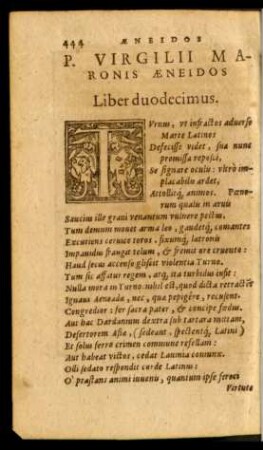 444 ÆNEIDOS
P. VIRGILII MA-
RONIS ÆNEIDOS
Liber duodecimus.
TVrnus, vt infractos aduerso
Marte Latinos
Defecisse videt, sua nunc
promissa reposci,
Se signare oculis: vltrò im-
placabilis ardet,
Attollitq́; animos. Pœno-
rum qualis in aruis
Saucius ille graui venantum vulnere pectus,
Tum demum mouet arma leo, gaudetq́; comantes
Excutiens ceruice toros, fixumq́; latronis
Impauidus frangit telum, & fremit ore cruento:
Haud secus accenso gliscit violentia Turno.
Tum sic affatur regem, atq; ita turbidus infit:
Nulla mora in Turno: nihil est, quod dicta retractēt
Ignaui Aeneadæ, nec, qua pepigêre, recusent.
Congredior: fer sacra pater, & concipe fœdus.
Aut hac Dardanium dextra sub tartara mittam,
Desertorem Asiæ, (sedeant, spectentq́; Latini)
Et solus ferro crimen commune refellam:
Aut habeat victos, cedat Lauinia coniunx.
Olli sedato respondit corde Latinus:
O' præstans animi iuuenis, quantum ipse feroci
Virtute